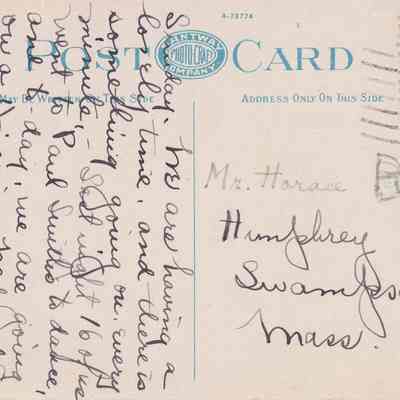 A-73774
POST CARD
SANTWAY
PHOTO-CRAFT
COMPANY
MAY BE WRITTEN ON THIS SIDE
ADDRESS ONLY ON THIS SIDE
Sunday, We are having a
lovely time, and there is
something going on every
minute, - Last night 16 of us
went to Paul Smiths to dance,
and to-day, we are going
on a
Mr. Horace
Humphrey
Swamps
Mass.